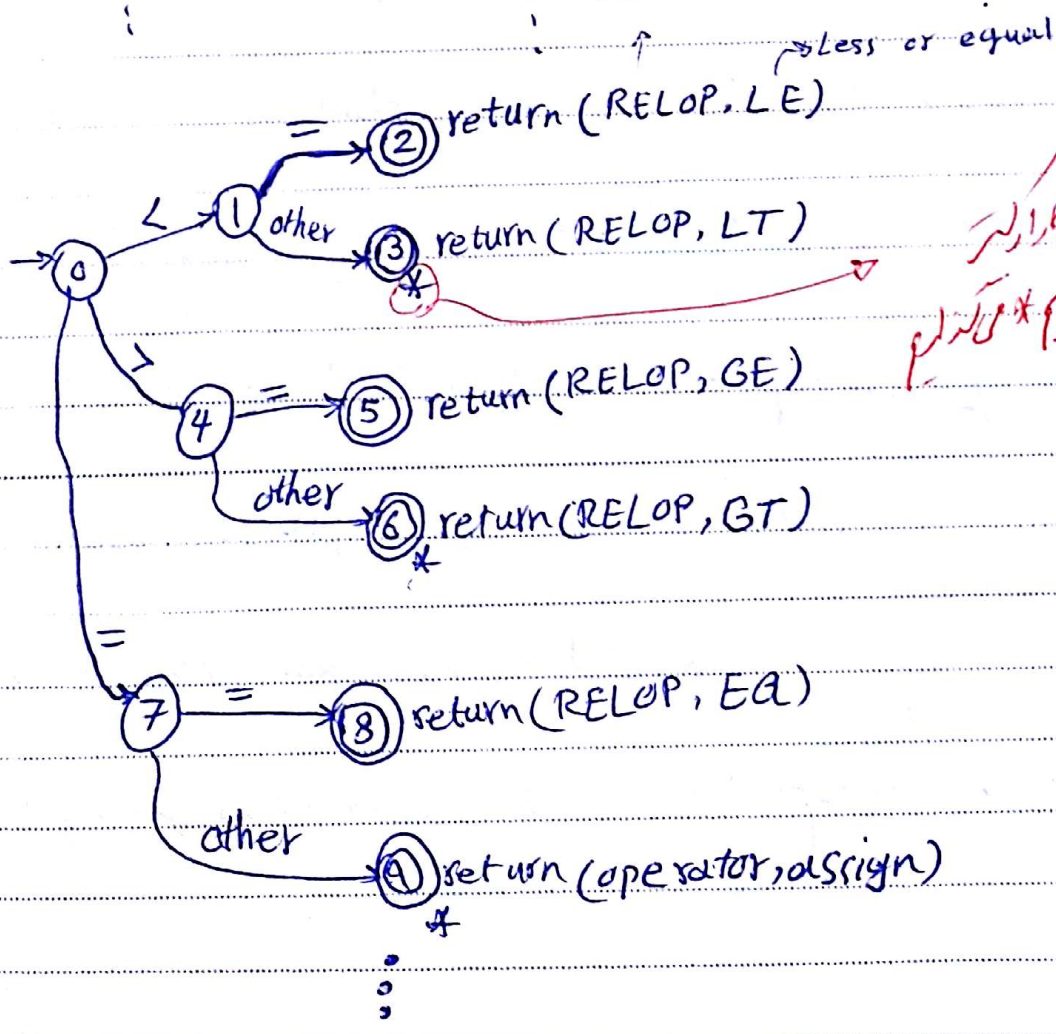 Less or equal
= 2 return (RELOP, LE)
< 1 other 3 return (RELOP, LT)
0 *
> 4 = 5 return (RELOP, GE)
* می‌گذاریم
other 6 return (RELOP, GT)
*
=
7 = 8 return (RELOP, EQ)
other 9 return (operator, assign)
*